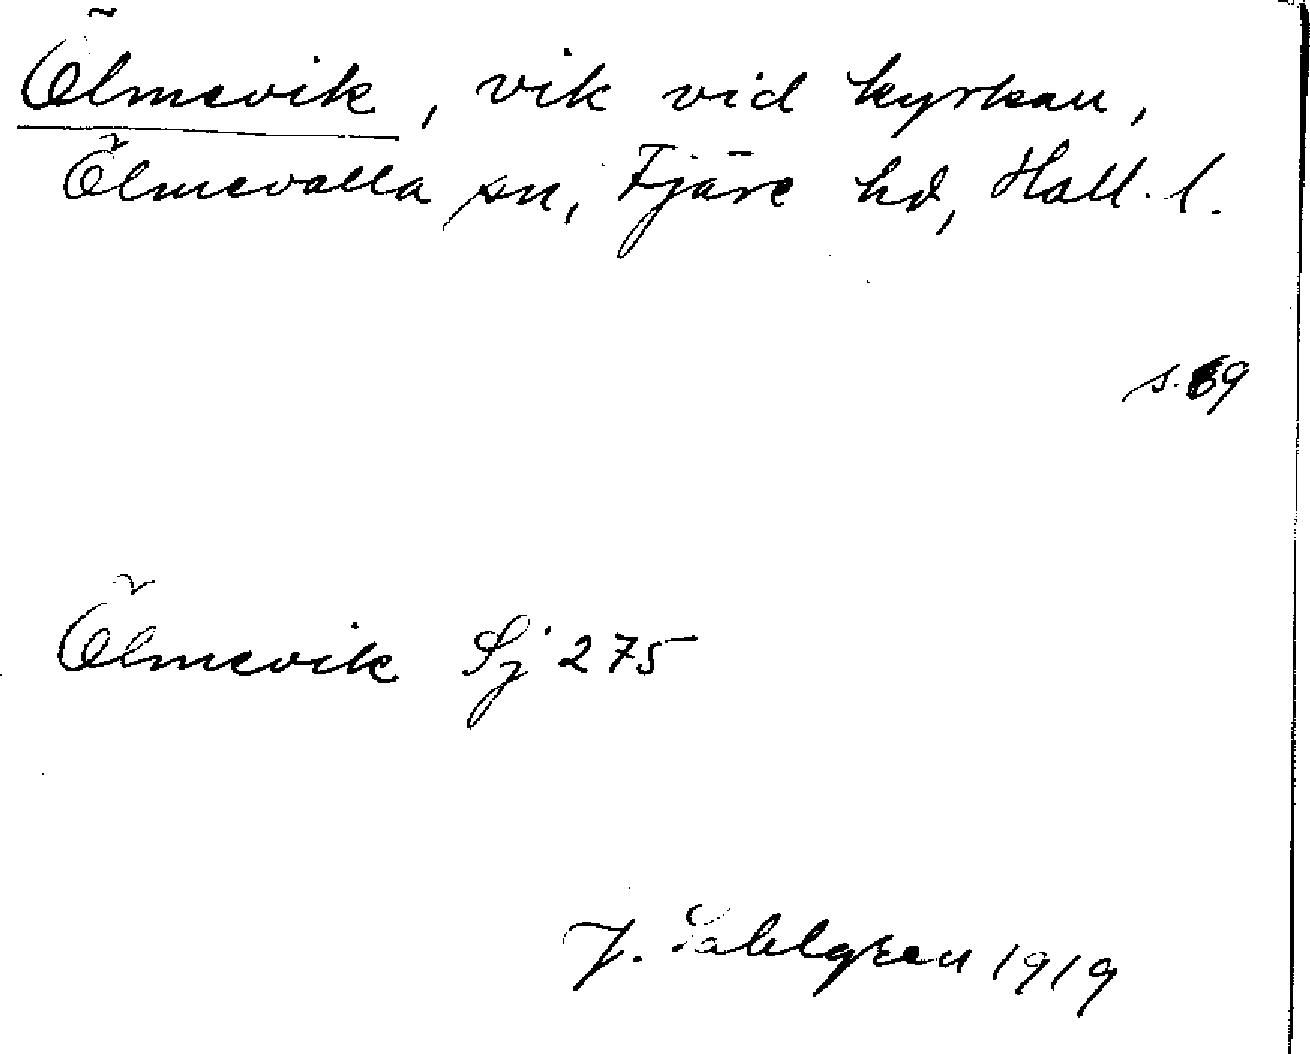 Ölmevik, vik vid kyrkan,
Ölmevalla sn, Fjäre hd, Hall. l.
s. 69
Ölmevik Sj 275
J. Sahlgren 1919